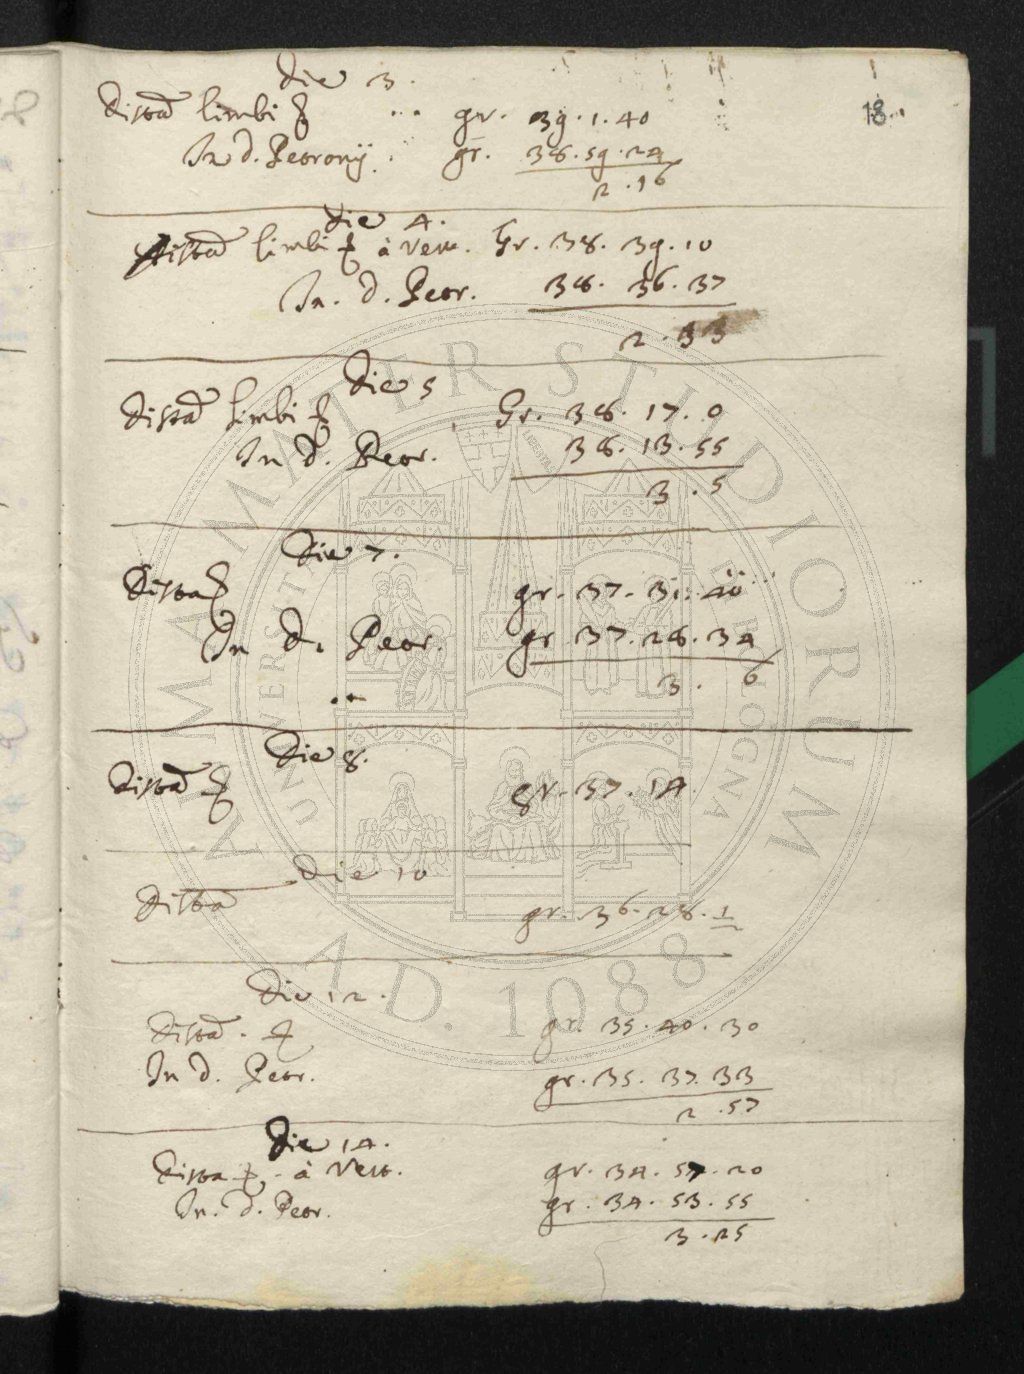 18
die 3.
Dista͞ limbi ... gr. 39.1.40
In d. Petronij. gr. 38.59.24
2.16
die 4.
Dista͞ limbi à Vert. Gr. 38.39.10
In. d. Petr. 38.36.37
2.33
die 5
Dista͞ limbi Gr. 38.17.0
In d. Petr. 38.13.55
3.5
die 7.
Dista gr. 37.31.40
In d. Petr. gr 37.28.34
3.6
die 8.
Dista͞ gr. 37.14
die 10
Dista͞ gr. 36.28.1
die 12.
Dista͞. gr. 35.40.30
In d. Petr. gr. 35.37.33
2.57
die 14.
Dista à Vert. gr. 34.57.20
In. d. Petr. gr. 34.53.55
3.25
ALMA MATER STUDIORUM
UNIVERSITÀ DI BOLOGNA
A.D. 1088